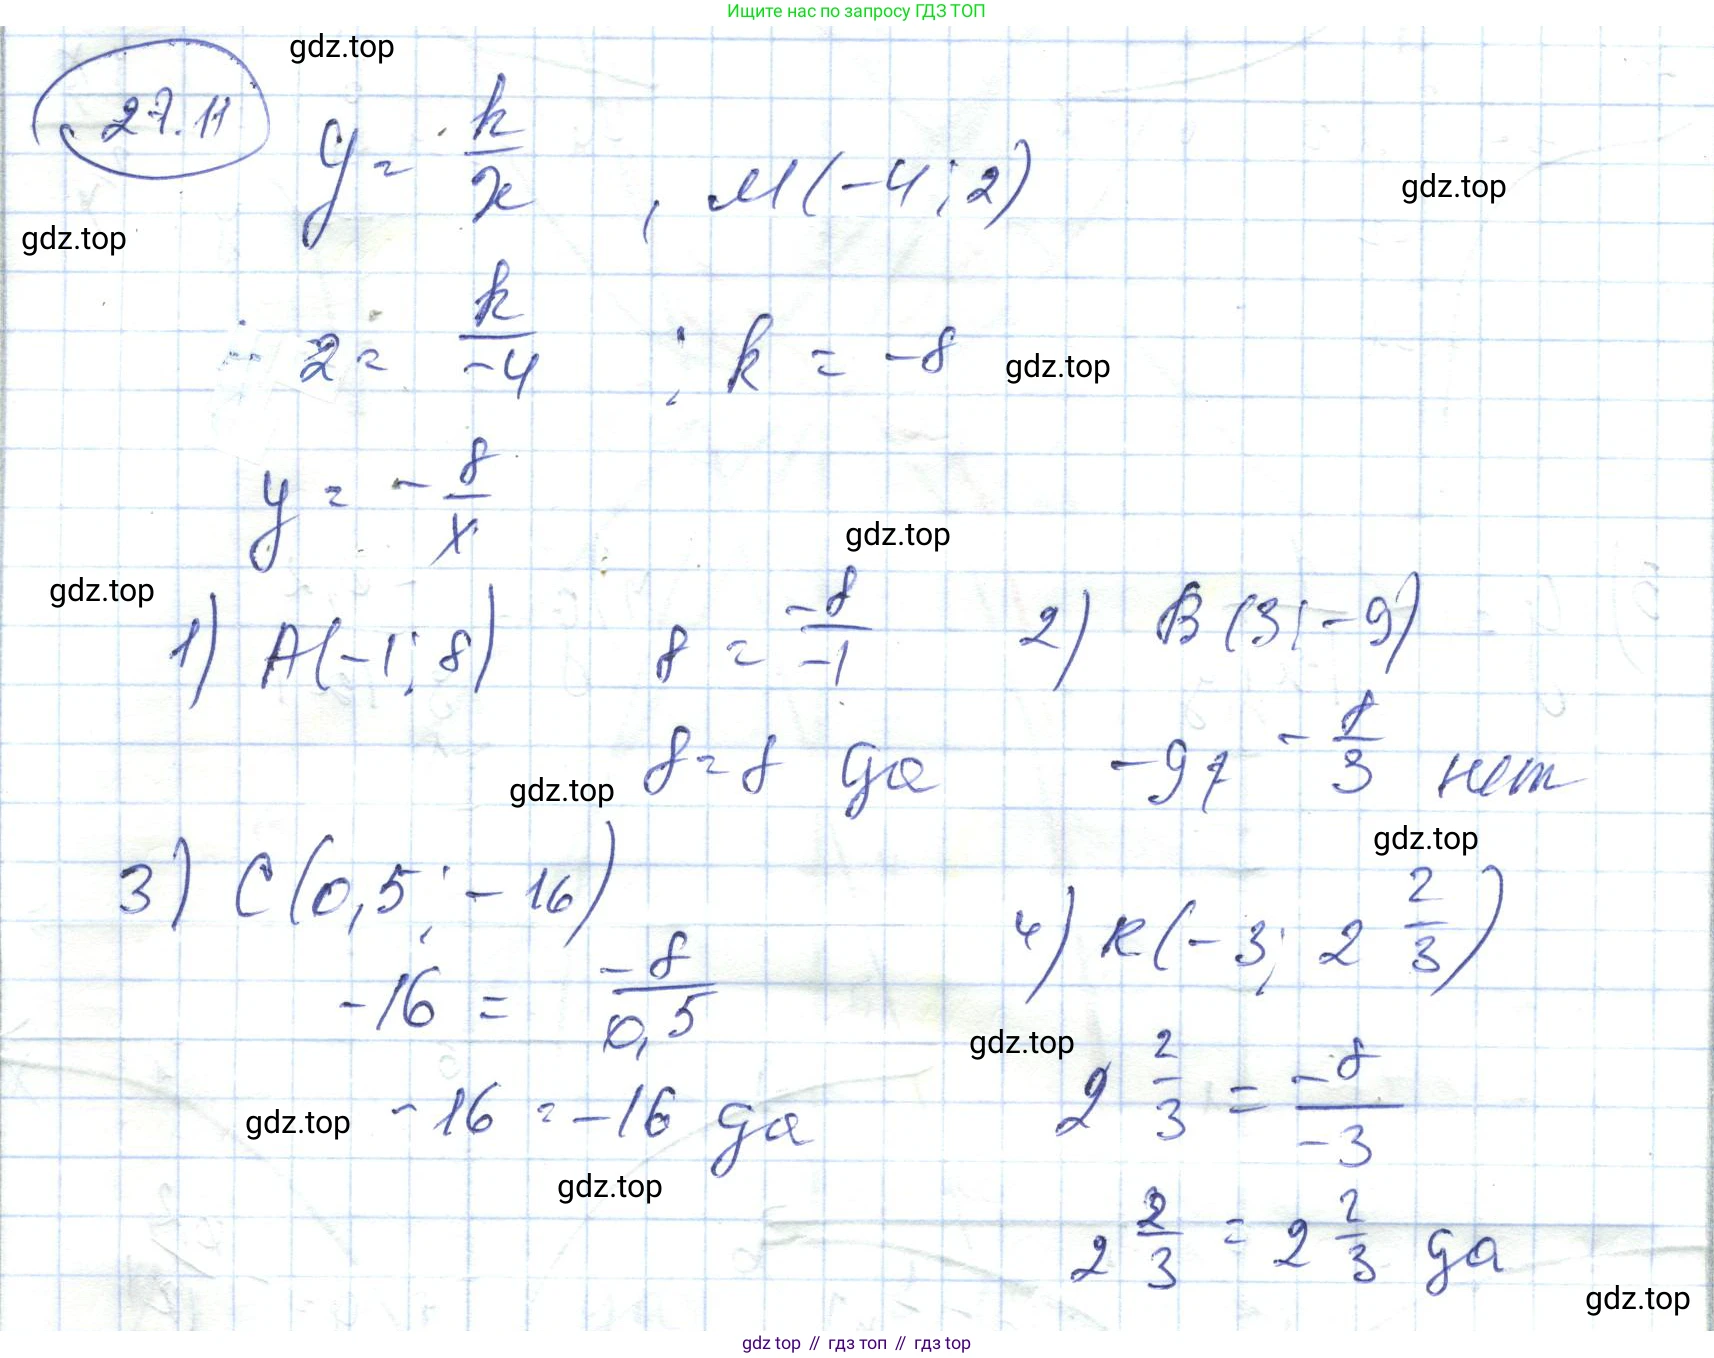 Ищите нас по запросу ГДЗ ТОП
gdz.top
27.11
y = k/x , M(-4; 2)
gdz.top
gdz.top
2 = k/-4 ; k = -8
gdz.top
y = - 8/x
gdz.top
gdz.top
1) A(-1; 8) 8 = -8/-1
8 = 8 да
2) B(3; -9)
-9 ≠ - 8/3 нет
gdz.top
gdz.top
3) C(0,5; -16)
-16 = -8/0,5
-16 = -16 да
gdz.top
gdz.top
4) K(-3; 2 2/3)
gdz.top
2 2/3 = -8/-3
2 2/3 = 2 2/3 да
gdz.top
gdz top // гдз топ // gdz top